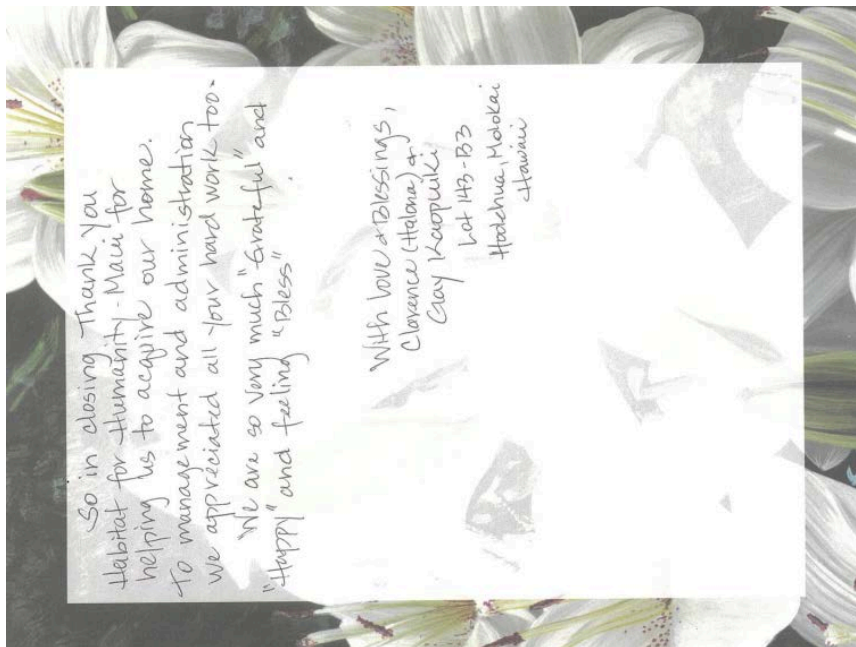 So in closing Thank You
Habitat for Humanity-Maui for
helping us to acquire our home.
To management and administration
we appreciated all your hard work too.
We are so very much "Grateful" and
"Happy" and feeling "Bless"
With Love & Blessings,
Clarence (Halona) &
Gay Kaopuiki
Lot 143-B3
Hoolehua, Molokai
Hawaii